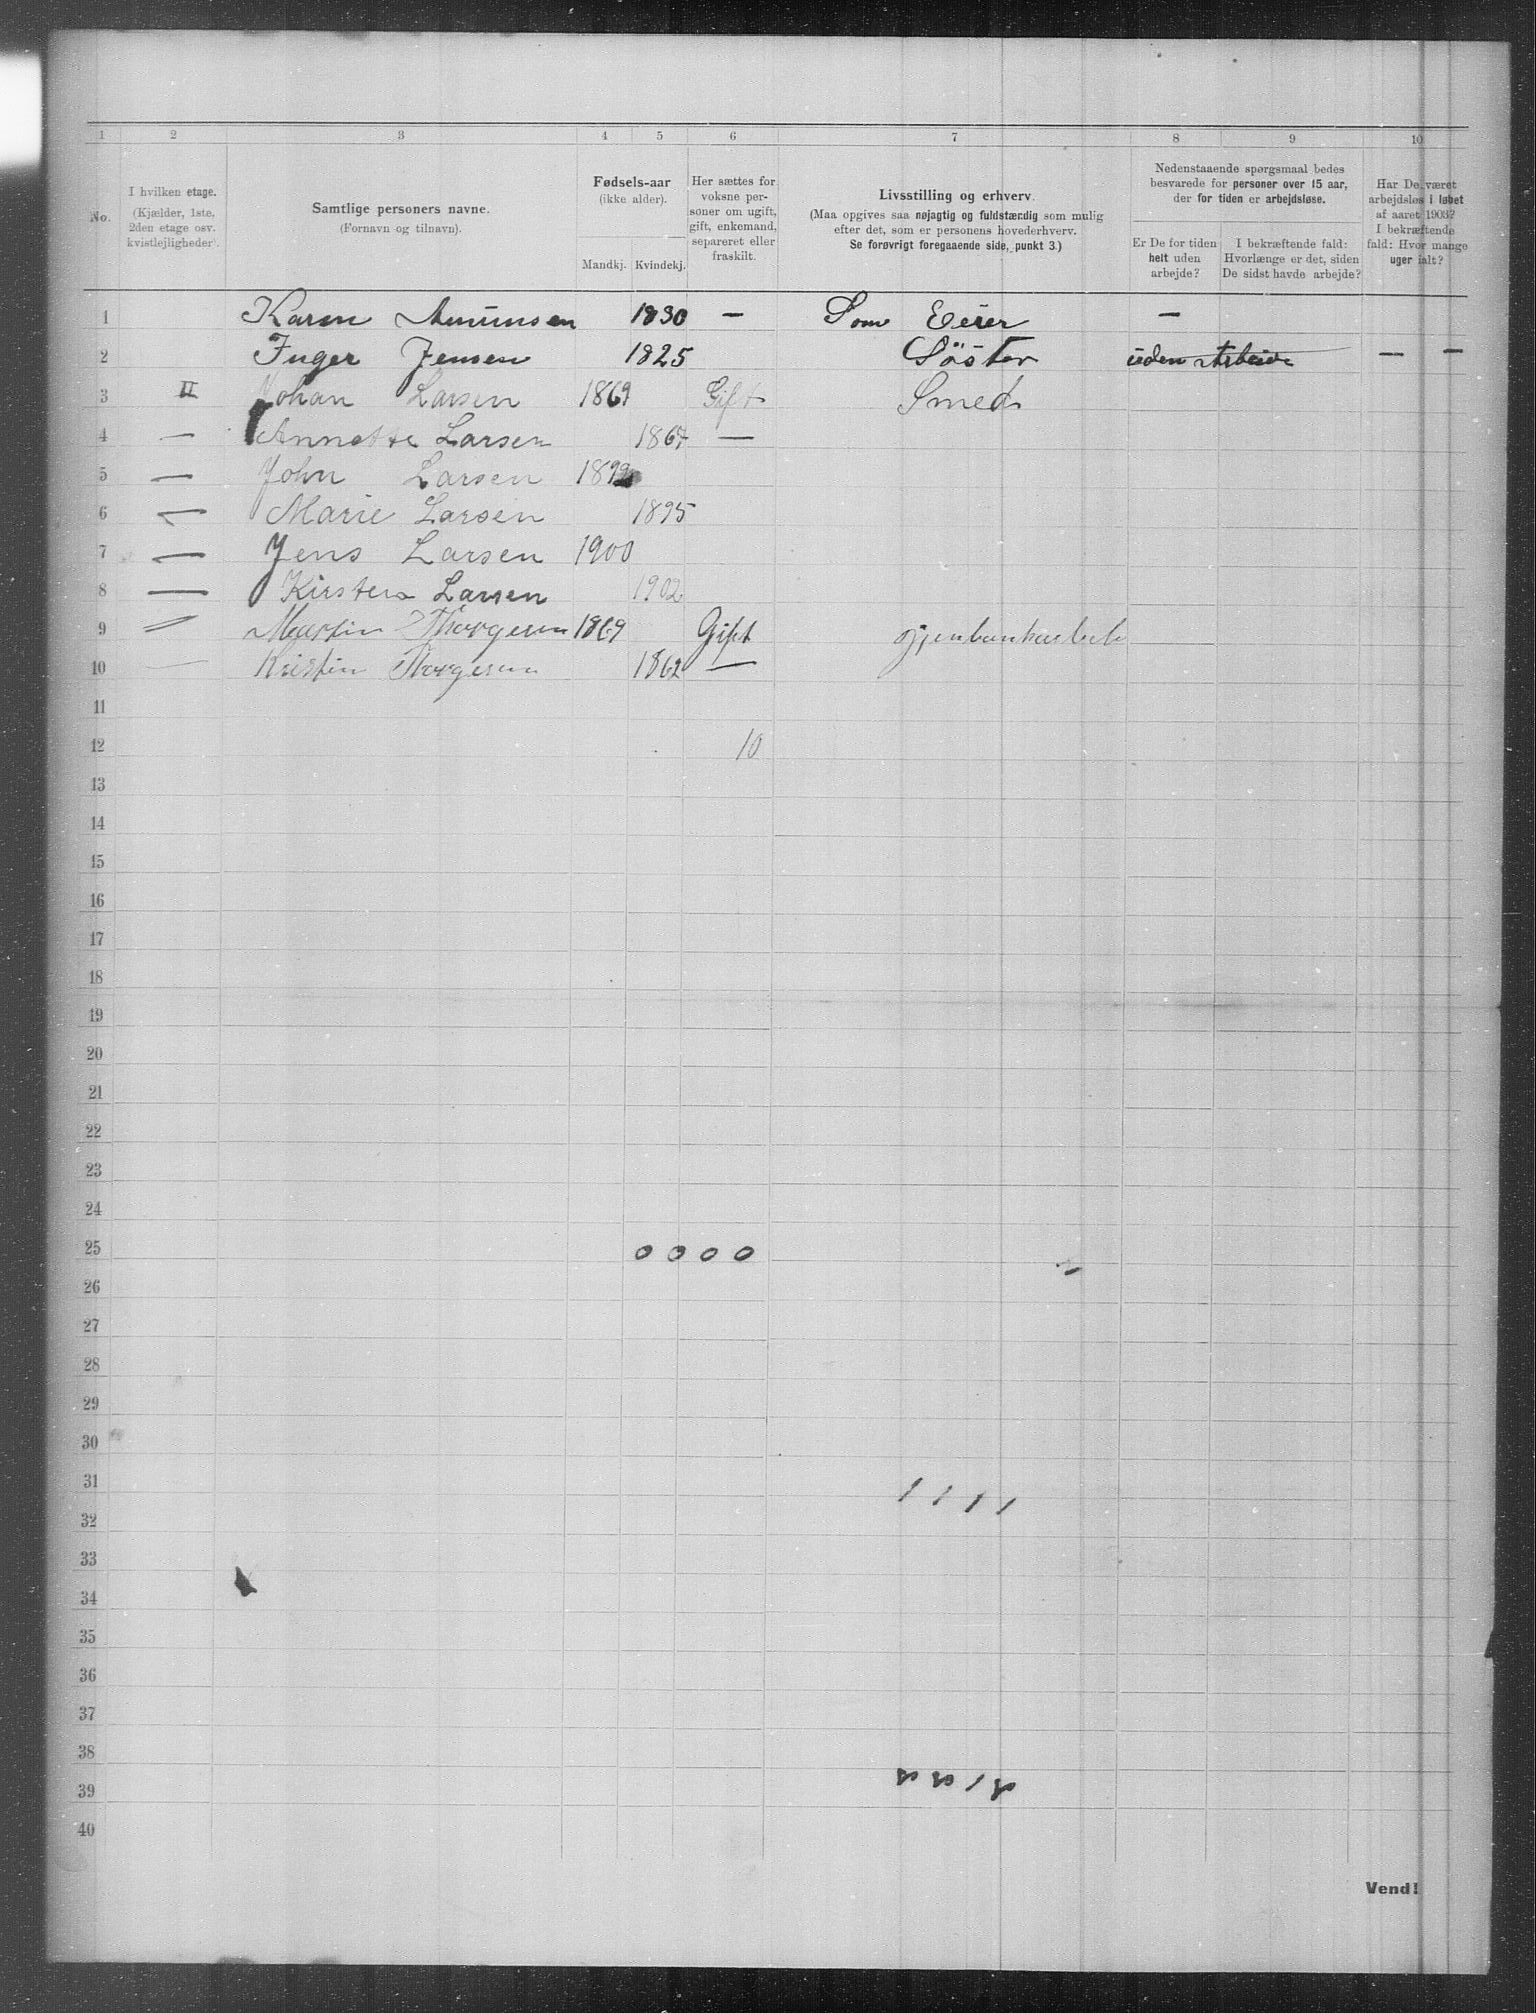 1 2 3 4 5 6 7 8 9 10
No.
I hvilken etage.
(Kjælder, 1ste,
2den etage osv.
kvistlejligheder).
Samtlige personers navne.
(Fornavn og tilnavn).
Fødsels-aar
(ikke alder).
Mandkj. Kvindekj.
Her sættes for
voksne per-
soner om ugift,
gift, enkemand,
separeret eller
fraskilt.
Livsstilling og erhverv.
(Maa opgives saa nøjagtig og fuldstændig som mulig
efter det, som er personens hovederhverv.
Se forøvrigt foregaaende side, punkt 3.)
Nedenstaaende spørgsmaal bedes
besvarede for personer over 15 aar,
der for tiden er arbejdsløse.
Er De for tiden
helt uden
arbejde?
I bekræftende fald:
Hvorlænge er det, siden
De sidst havde arbejde?
Har De været
arbejdsløs i løbet
af aaret 1903?
I bekræftende
fald: Hvor mange
uger ialt?
1 Karen Amundsen 1830 — Som Eeier —
2 Inger Jensen 1825 Söster uden Arbeide — —
3 II Johan Larsen 1869 Gift Smed
4 — Annette Larsen 1867 —
5 — John Larsen 1892
6 — Marie Larsen 1895
7 — Jens Larsen 1900
8 — Kirsten Larsen 1902
9 〃 Martin Thorgersen 1869 Gift
10 — Kristin Thorgersen 1862 —
11
12 10
13
14
15
16
17
18
19
20
21
22
23
24
25 0 0 0 0
26
27
28
29
30
31 1 1 1 1
32
33
34
35
36
37
38
39
40
Vend!